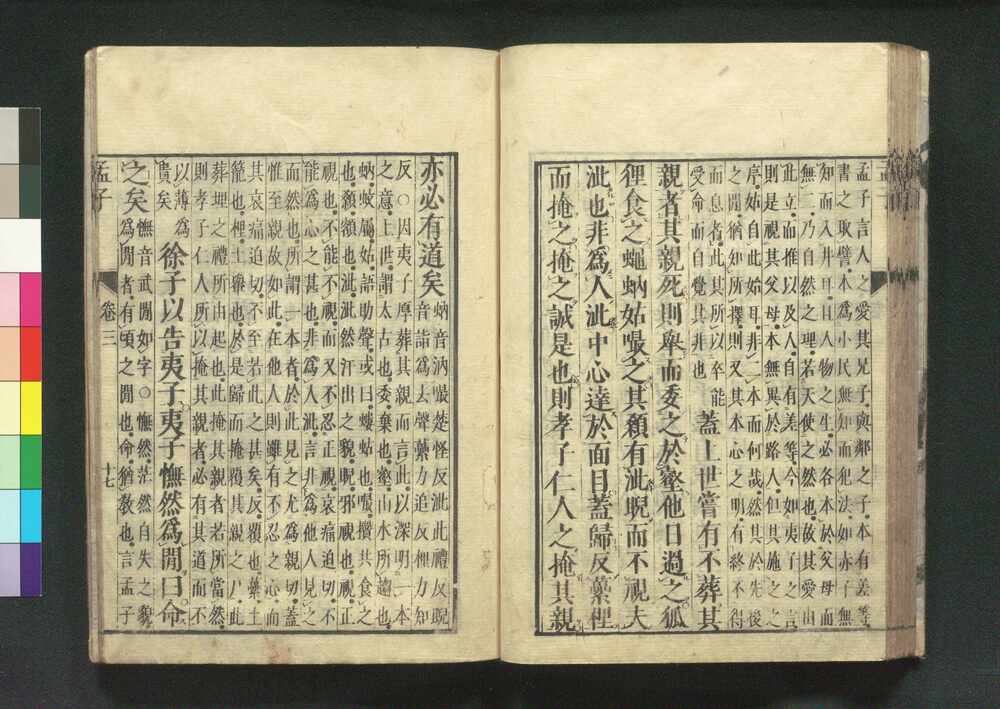 孟子言人之愛其兄子與鄰之子本有差等
書之取譬本爲小民無知而犯法如赤子無
知而入井耳且人物之生必各本於父母而
無二乃自然之理若天使之然也故其愛由
此立而推以及人自有差等今如夷子之言
則是視其父母本無異於路人但其施之之
序姑自此始耳非二本而何哉然其於先後
之閒猶知所擇則又其本心之明有終不得
而息者此其所以卒能
受命而自覺其非也
蓋上世嘗有不葬其
親者其親死則舉而委之於壑他日過之狐
狸食之蠅蚋姑嘬之其顙有泚睨而不視夫
泚也非爲人泚中心達於面目蓋歸反虆梩
而掩之掩之誠是也則孝子仁人之掩其親
亦必有道矣
蚋音汭嘬楚怪反泚此禮反睨
音詣爲去聲虆力追反梩力知
反○因夷子厚葬其親而言此以深明一本
之意上世謂太古也委棄也壑山水所趨也
蚋蚊屬姑語助聲或曰螻蛄也嘬攢共食之
也顙額也泚泚然汗出之貌睨邪視也視正
視也不能不視而又不忍正視哀痛迫切不
能爲心之甚也非爲人泚言非爲他人見之
而然也所謂一本者於此見之尤爲親切蓋
惟至親故如此在他人則雖有不忍之心而
其哀痛迫切不至若此之甚矣反覆也虆土
籠也梩土轝也於是歸而掩覆其親之尸此
葬埋之禮所由起也此掩其親者若所當然
則孝子仁人所以掩其親者必有其道而不
以薄爲
貴矣
徐子以告夷子夷子憮然爲閒曰命
之矣
憮音武閒如字○憮然茫然自失之貌
爲閒者有頃之閒也命猶教也言孟子
孟子
卷三
十七